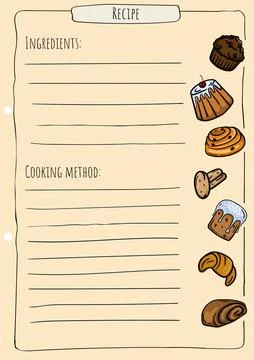 Recipe
Ingredients:
Cooking method: